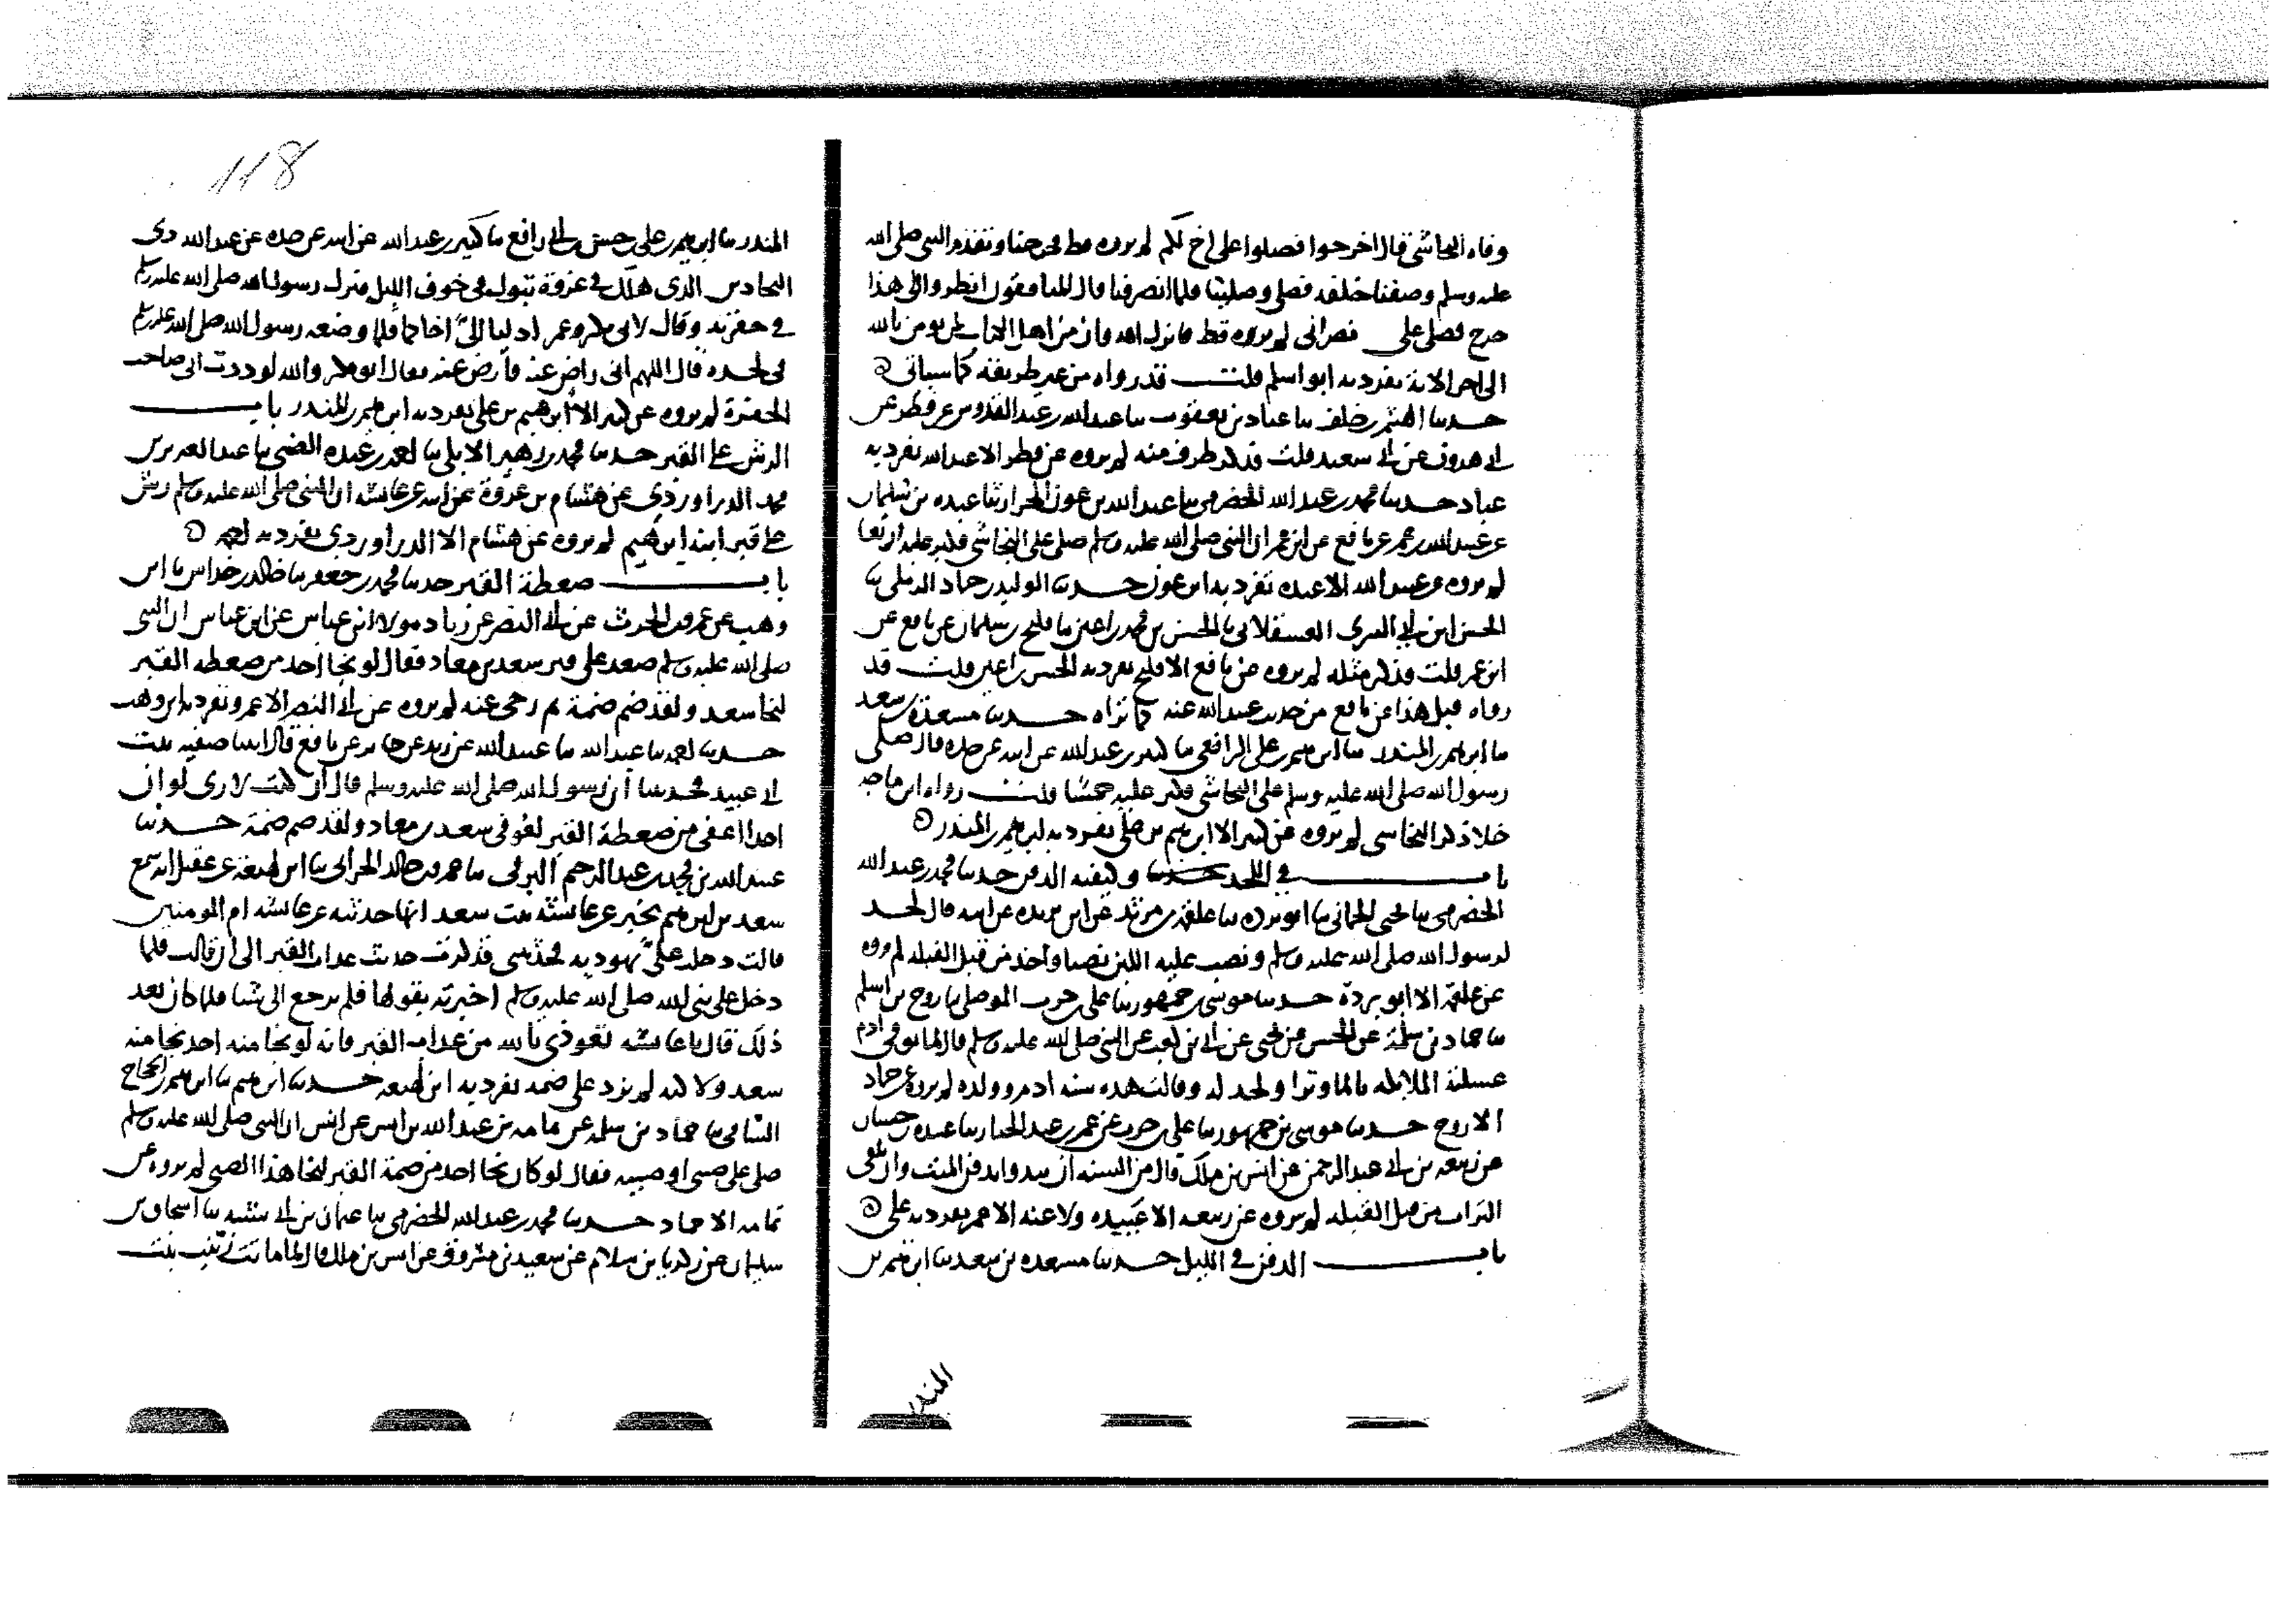 وفاه النجاشي فقال اخرجوا فصلوا على اخ لكم لم تروه قط فخرجنا وتقدم النبي صلى الله
عليه وسلم وصففنا خلفه فصلى وصلينا فلما انصرفنا قال المنافقون انظروا الى هذا
خرج فصلى على نصراني لم يروه قط فانزل الله وان من اهل الكتاب لمن يومن بالله
الى اخر الاية تفرد به ابو اسلم قلت قد رواه من غير طريقه كما سياتي
حدثنا الهيثم بن خلف ثنا عباد بن يعقوب ثنا عبد الله بن عبد القدوس عن فطر عن
ابي هرون عن ابي سعيد قلت فذكر طرف منه لم يروه عن فطر الا عبد الله تفرد به
عباد حدثنا محمد بن عبد الله الحضرمي ثنا عبد الله بن عون الخراز ثنا عبده بن سليمان
عن عبيد الله بن عمر عن نافع عن ابن عمر ان النبي صلى الله عليه وسلم صلى على النجاشي فكبر عليه اربعا
لم يروه عن عبيد الله الا عبده تفرد به ابن عون حدثنا الوليد بن حماد الرملي ثنا
الحسن ابن ابي السري العسقلاني ثنا الحسن بن محمد بن اعين ثنا فليح بن سليمان عن نافع عن
ابن عمر قلت فذكر مثله لم يروه عن نافع الا فليح تفرد به الحسن بن اعين قلت قد
رواه قبل هذا عن نافع من حديث عبيد الله عنه كما تراه حدثنا مسعدة بن سعد
ثنا ابراهيم بن المنذر ثنا ابراهيم بن علي الرافعي ثنا كثير بن عبد الله عن ابيه عن جده قال صلى
رسول الله صلى الله عليه وسلم على النجاشي فكبر عليه خمسا قلت رواه ابن ماجه
خلا ذكر النجاشي لم يروه عن كثير الا ابراهيم بن علي تفرد به ابراهيم بن المنذر
باب في اللحد وكيفية الدفن حدثنا محمد بن عبد الله
الحضرمي ثنا يحيى الحماني ثنا ابو برده ثنا علقمة بن مرثد عن ابن بريده عن ابيه قال لحد
لرسول الله صلى الله عليه وسلم ونصب عليه اللبن نصبا واخذ من قبل القبله لم يروه
عن علقمة الا ابو بردة حدثنا موسى بن جمهور ثنا علي بن حرب الموصلي ثنا روح بن اسلم
ثنا حماد بن سلمة عن الحسن عن يحيى عن ابي بن كعب عن النبي صلى الله عليه وسلم قال لما توفي ادم
غسلته الملائكه بالماء وترا ولحد له وقالت هذه سنه ادم وولده لم يروه عن حماد
الا روح حدثنا موسى بن جمهور ثنا علي بن حرب عن عمر بن عبد الجبار ثنا عبيده بن حسان
عن ربيعه بن ابي عبد الرحمن عن انس بن ملك قال من السنه ان يبدوا بدفن الميت وان يلقى
التراب من قبل القبله لم يروه عن ربيعه الا عبيده ولا عنه الا عمر تفرد به علي
باب الدفن في الليل حدثنا مسعده بن سعد ثنا ابراهيم بن
المنذر
118
المنذر ثنا ابراهيم بن علي بن حسن بن ابي رافع ثنا كثير بن عبد الله عن ابيه عن جده عن عبد الله ذي
البجادين الذي هلك في غزوة تبوك في خوف الليل فنزل رسول الله صلى الله عليه وسلم
في حفرته وقال لابي بكر وعمر ادليا الي اخاكما فلما وضعه رسول الله صلى الله عليه وسلم
في لحده قال اللهم اني راض عنه فارض عنه فقال ابو بكر والله لوددت اني صاحب
الحفرة لم يروه عن كثير الا ابراهيم بن علي تفرد به ابراهيم بن المنذر باب
الرش على القبر حدثنا محمد بن زهير الابلي ثنا احمد بن عبده الضبي ثنا عبد العزيز بن
محمد الدراوردي عن هشام بن عروة عن ابيه عن عايشه ان النبي صلى الله عليه وسلم رش
على قبر ابنه ابراهيم لم يروه عن هشام الا الدراوردي تفرد به احمد
باب ضغطة القبر حدثنا محمد بن جعفر ثنا خالد بن خداش ثنا ابن
وهب عن عمرو بن الحرث عن ابي النضر عن زياد مولا ابن عباس عن ابن عباس ان النبي
صلى الله عليه وسلم صعد على قبر سعد بن معاد فقال لو نجا احد من ضغطه القبر
لنجا سعد ولقد ضم ضمة ثم رخى عنه لم يروه عن ابي النضر الا عمرو تفرد به ابن وهب
حدثنا احمد ثنا عبد الله ثنا عبيد الله عن زيد عن جابر عن نافع قال اتينا صفيه بنت
ابي عبيد فحدثتنا ان رسول الله صلى الله عليه وسلم قال ان كنت لارى لو ان
احدا اعفي من ضغطة القبر لعوفي سعد بن معاد ولقد ضم ضمة حدثنا
عبد الله بن محمد بن عبد الرحيم البرقي ثنا عمرو بن خالد الحراني ثنا ابن لهيعة عن عقيل انه سمع
سعد بن ابراهيم يخبر عن عايشه بنت سعد انها حدثته عن عايشه ام المومنين
قالت دخلت علي يهوديه فحدثتني فذكرت حديث عذاب القبر الى ان قالت فلما
دخل علي نبي الله صلى الله عليه وسلم اخبرته بقولها فلم يرجع الي شيا فلما كان بعد
ذلك قال يا عايشه تعوذي بالله من عذاب القبر فانه لو نجا منه احد نجا منه
سعد ولاكنه لم يزد على ضمه تفرد به ابن لهيعه حدثنا ابراهيم ثنا ابراهيم بن الحجاج
السامي ثنا حماد بن سلمه عن ثمامه بن عبد الله بن انس عن انس ان النبي صلى الله عليه وسلم
صلى على صبي او صبيه فقال لو كان نجا احد من ضمة القبر لنجا هذا الصبي لم يروه عن
ثمامه الا حماد حدثنا محمد بن عبد الله الحضرمي ثنا عثمان بن ابي شيبه ثنا اسحاق بن
سليمان عن زكريا بن سلام عن سعيد بن مسروق عن انس بن ملك قال لما ماتت زينب بنت